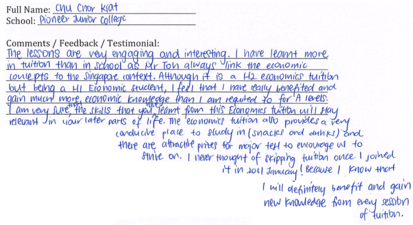 Full Name: Chu Chor Kiat
School: Pioneer Junior College
Comments / Feedback / Testimonial:
The lessons are very engaging and interesting. I have learnt more
in tuition than in school as Mr Toh always link the economic
concepts to the Singapore context. Although it is a H2 economics tuition
but being a H1 Economic student, I feel that I have really benefited and
gain much more economic knowledge than I am required to for 'A' levels.
I am very sure, the skills that you learnt from this Economics tuition will stay
relevant in your later parts of life. The economics tuition also provides a very
conducive place to study in (snacks and drinks) and
there are attractive prizes for major test to encourage us to
strive on. I never thought of skipping tuition once I joined
it in 2011 January! Because I know that
I will definitely benefit and gain
new knowledge from every session
of tuition.